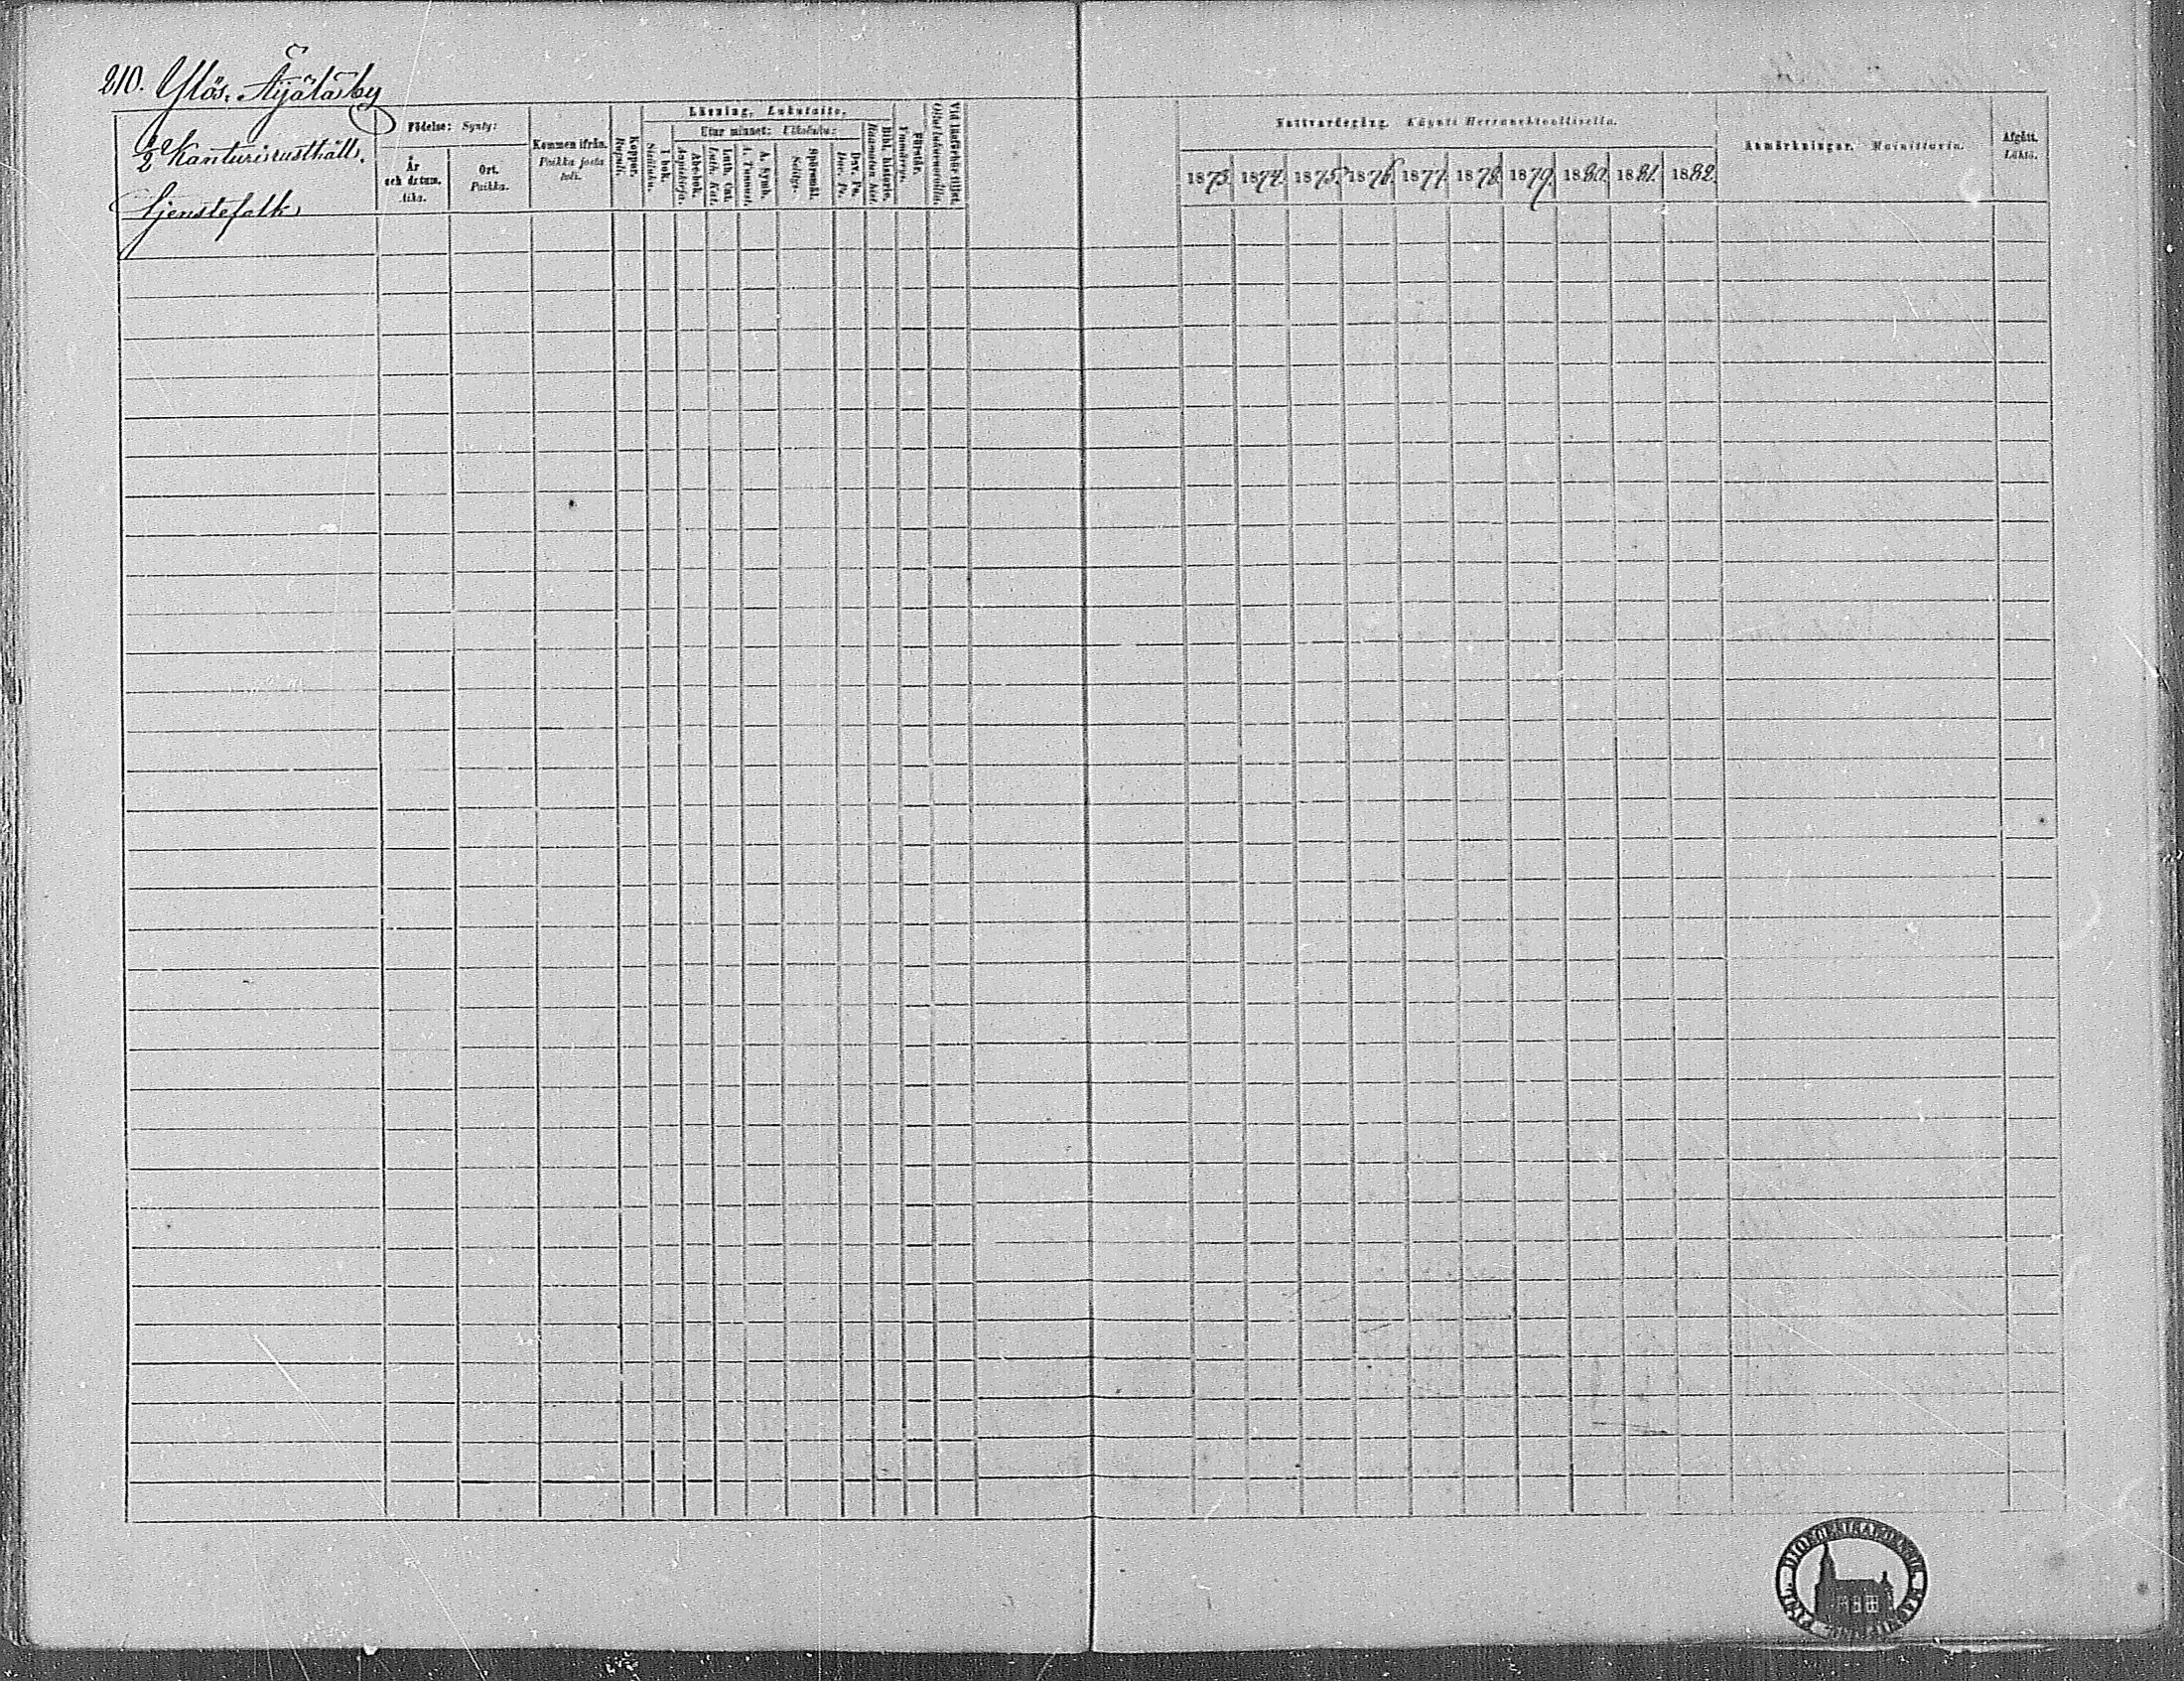 210. Ylös. Äijälä by
1/2 Kanturi rusthåll.
Tjenstefolk
Födelse: Synty:
År och datum. Aika.
Ort. Paikka.
Kommen ifrån. Paikka josta tuli.
Koppor. Rupuli.
Läsning, Lukutaito,
I bok. Sisäluku.
Utur minnet: Ulkoluku:
Abc-bok. Aapiskirja.
Luth. Cat. Luth. Kat.
A. Symb. A. Tunnust.
Spörsmål. Selitys.
Dav. Ps. Dav. Ps.
Bibl. historie. Raamatun hist.
Förstår. Ymmärrys.
Vid läsförhör tillst. Ollut lukuvuorolla.
Nattvardsgång. Käynti Herranehtoollisella.
1873. 1874. 1875. 1876. 1877. 1878. 1879. 1880. 1881. 1882.
Anmärkningar. Mainittavia.
Afgått. Lähtö.